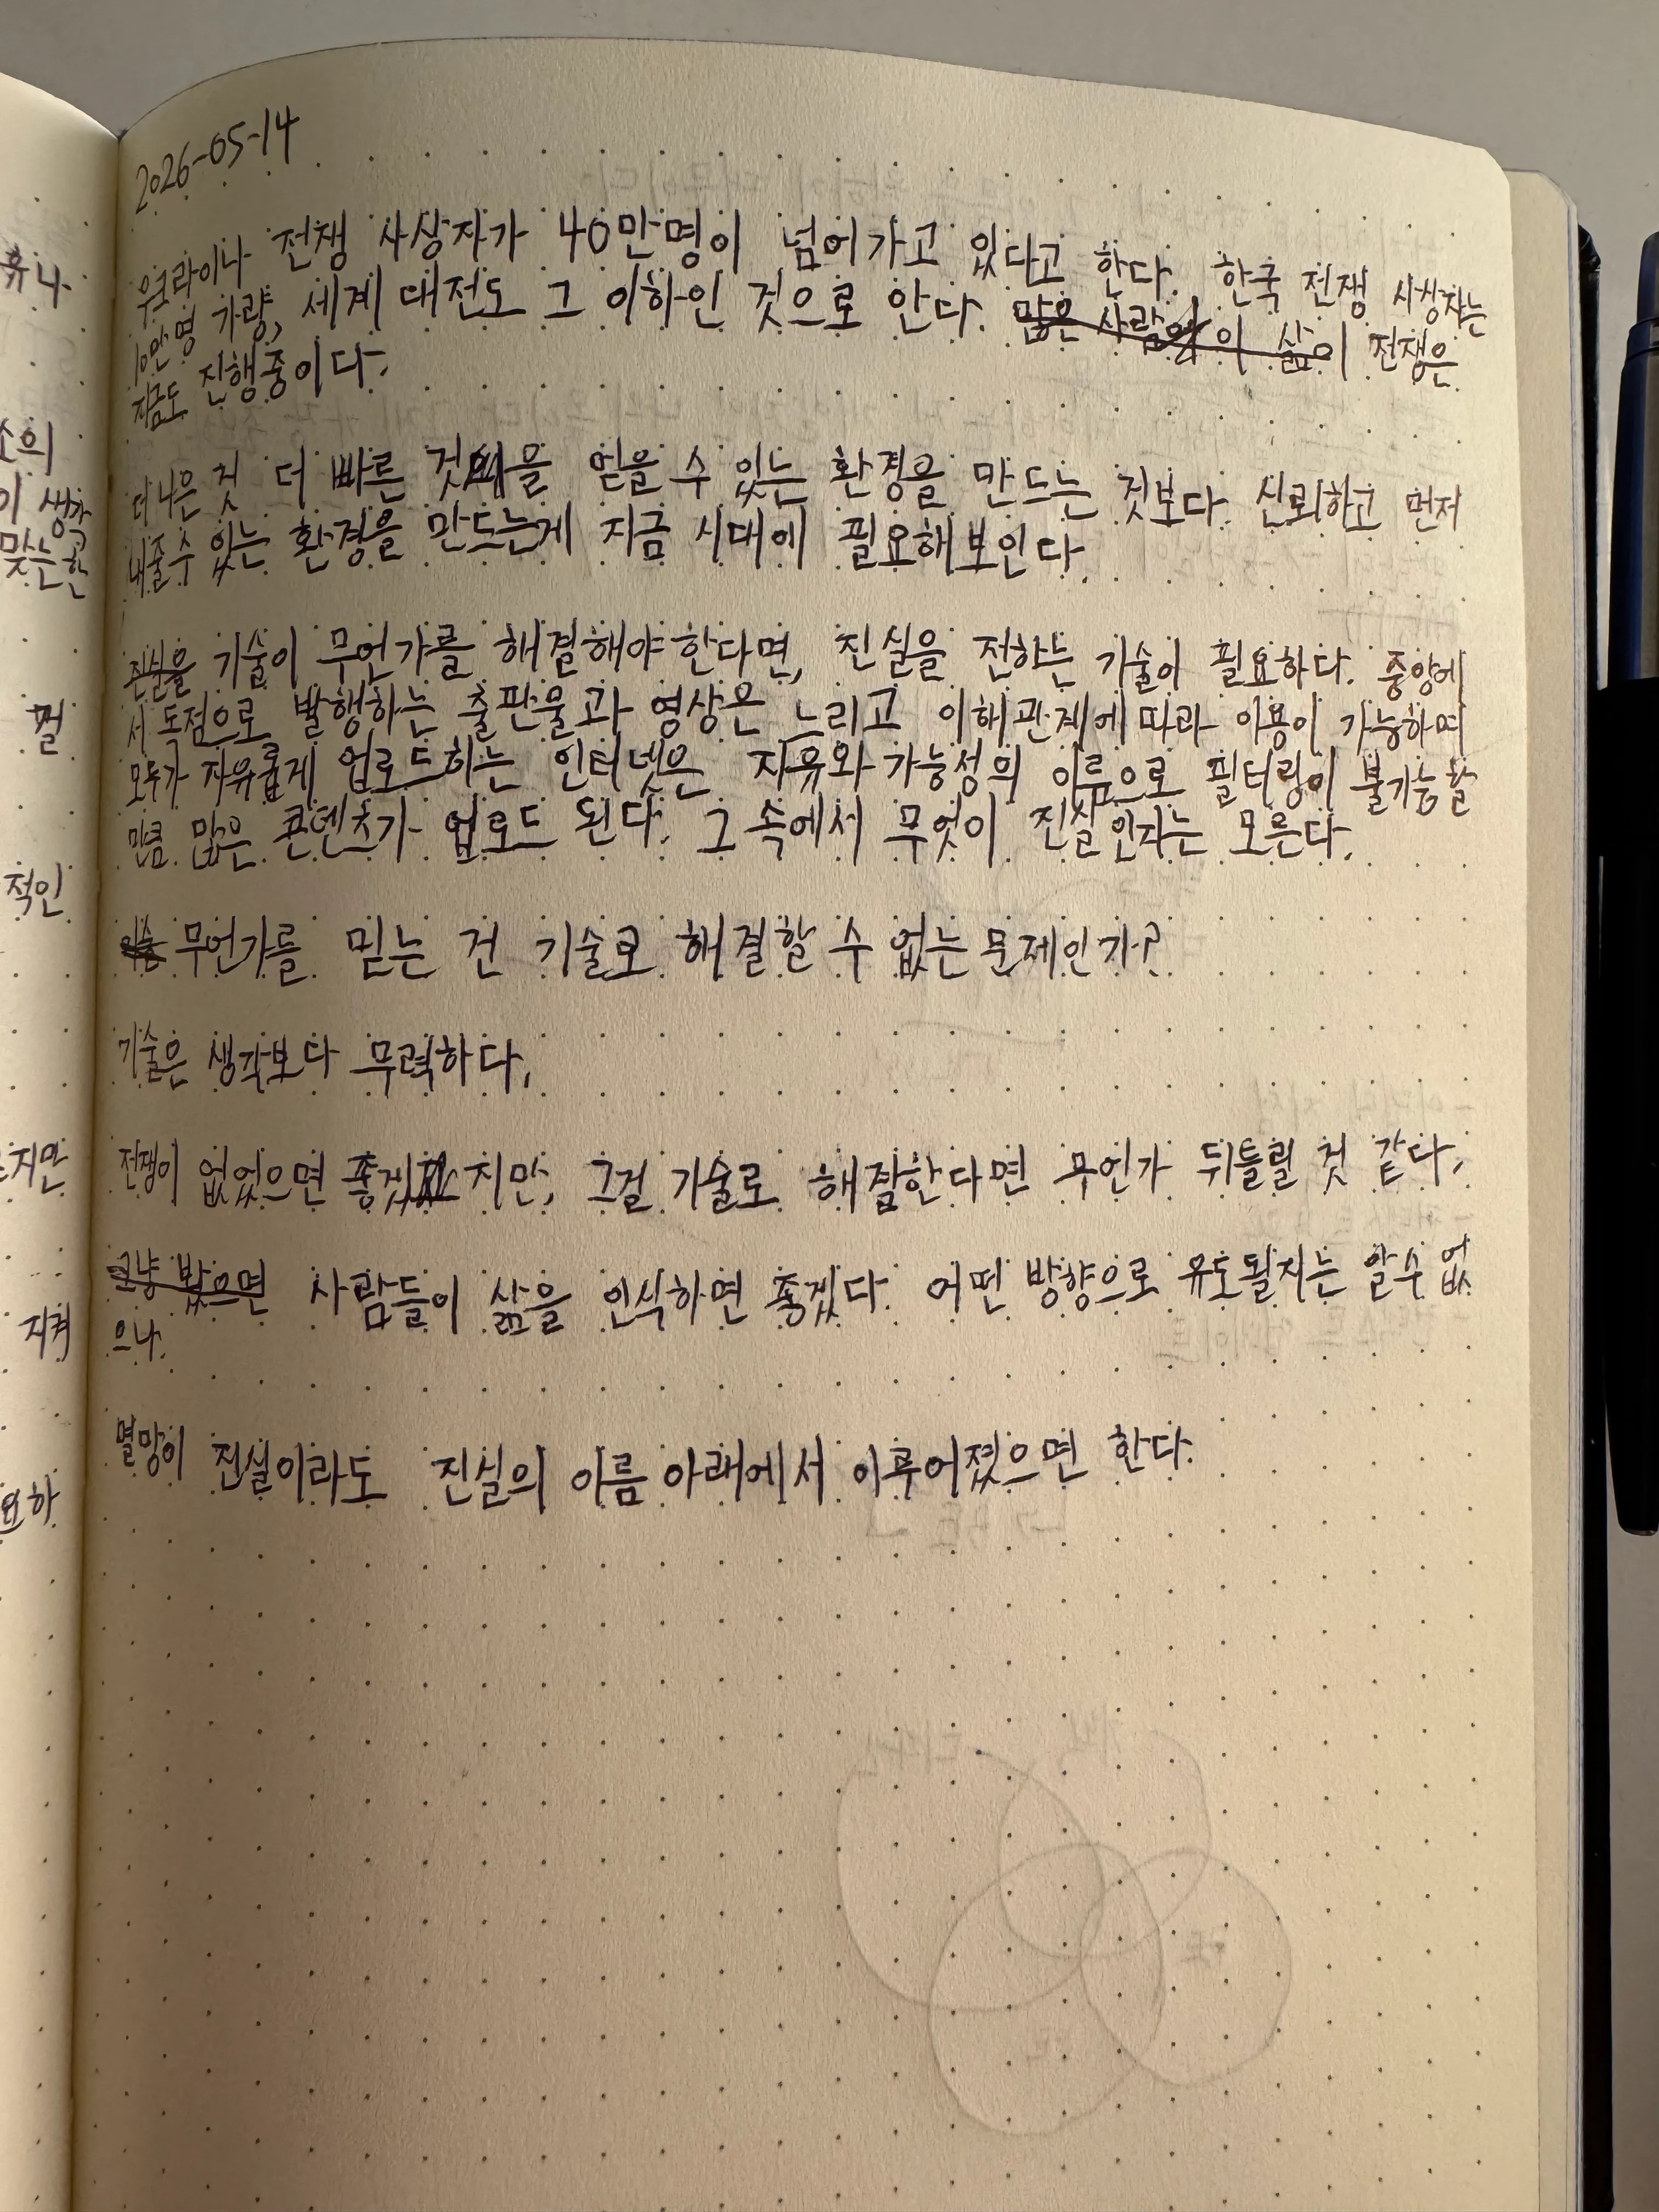 2026-05-14
우크라이나 전쟁 사상자가 40만명이 넘어가고 있다고 한다. 한국 전쟁 사상자는
10만명 가량, 세계 대전도 그 이하인 것으로 안다. 많은 사람 이 삶이 전쟁은
지금도 진행중이다.
더 나은 것 더 빠른 것 을 얻을 수 있는 환경을 만드는 것보다. 신뢰하고 먼저
내줄 수 있는 환경을 만드는게 지금 시대에 필요해보인다.
진실을 기술이 무언가를 해결해야 한다면, 진실을 전하는 기술이 필요하다. 중앙에
서 독점으로 발행하는 출판물과 영상은 느리고 이해관계에 따라 이용이 가능하며
모두가 자유롭게 업로드하는 인터넷은 자유와 가능성의 이름으로 필터링이 불가능할
만큼 많은 콘텐츠가 업로드 된다. 그 속에서 무엇이 진실인지는 모른다.
무언가를 믿는 건 기술로 해결할 수 없는 문제인가?
기술은 생각보다 무력하다.
전쟁이 없었으면 좋겠 지만, 그걸 기술로 해결한다면 무언가 뒤틀릴 것 같다.
그냥 밨으면 사람들이 삶을 인식하면 좋겠다. 어떤 방향으로 유도될지는 알 수 없
으나.
멸망이 진실이라도 진실의 이름 아래에서 이루어졌으면 한다.
휴나
소의
이 생각
맞는 한
걸
적인
지만
지켜
요하